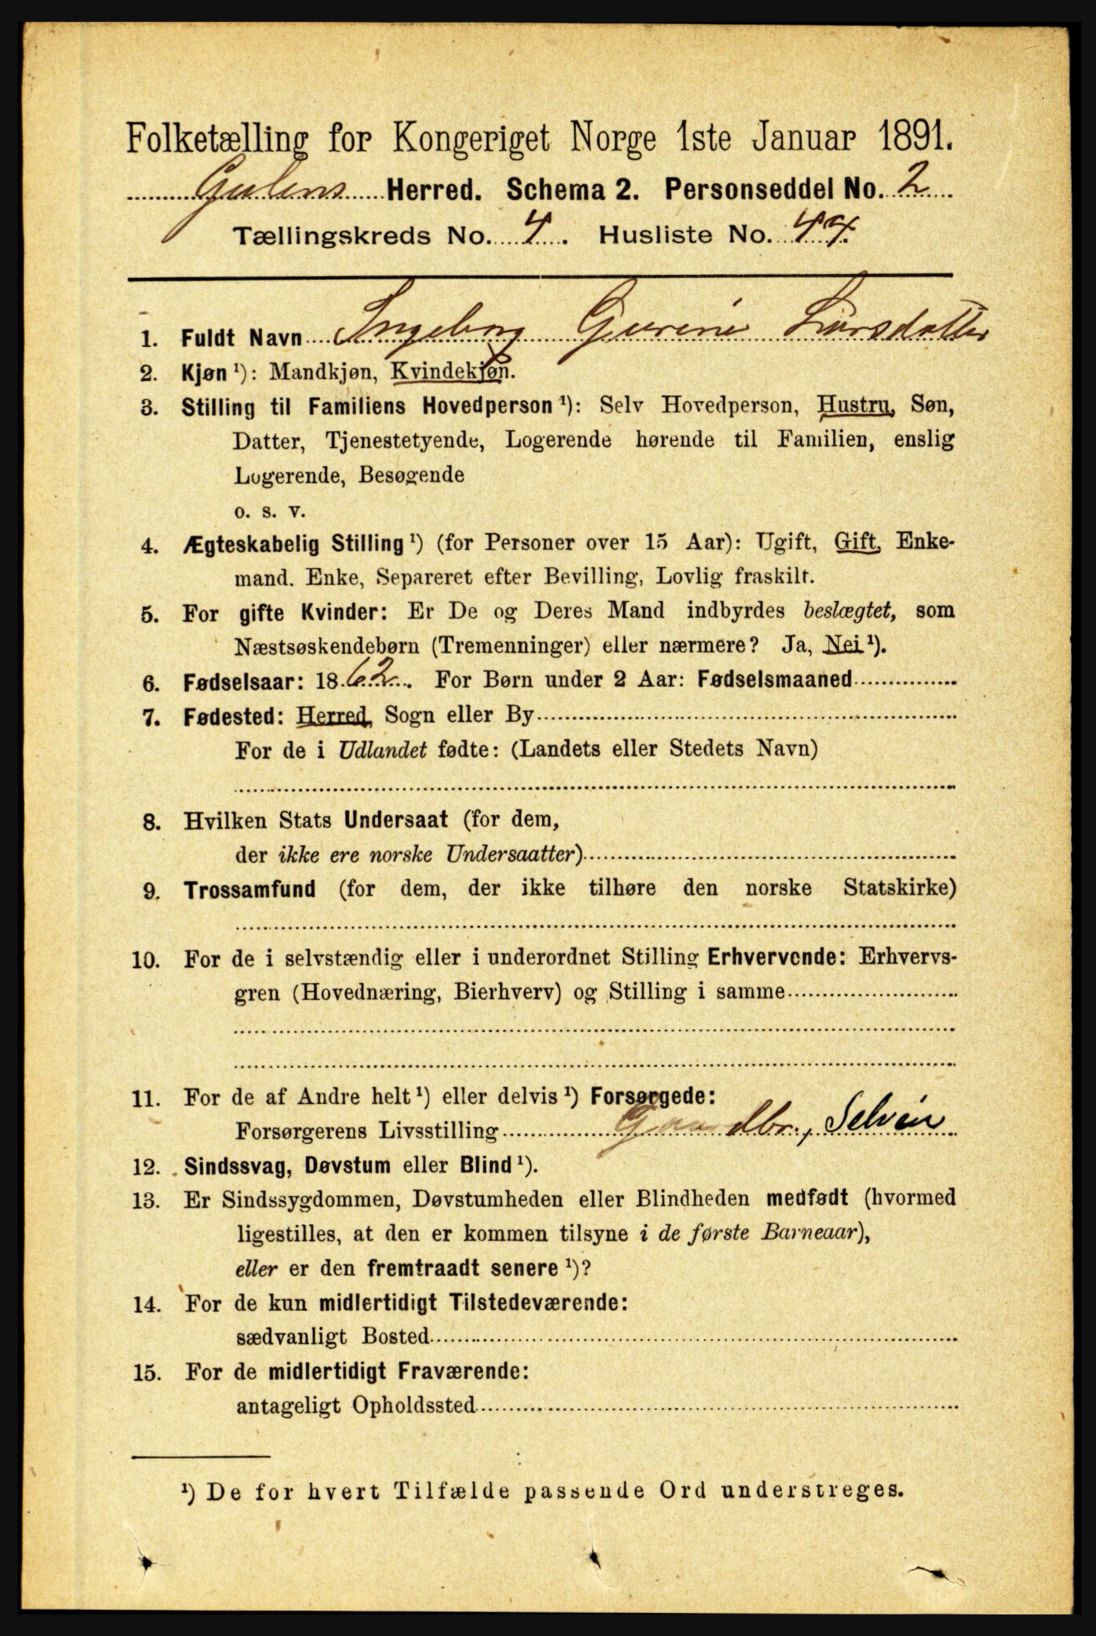 Folketælling for Kongeriget Norge 1ste Januar 1891.
Gulens Herred. Schema 2. Personseddel No. 2
Tællingskreds No. 4. Husliste No. 44.
1. Fuldt Navn Ingeborg Gurine Larsdatter
2. Kjøn ¹): Mandkjøn, Kvindekjøn.
3. Stilling til Familiens Hovedperson ¹): Selv Hovedperson, Hustru, Søn,
Datter, Tjenestetyende, Logerende hørende til Familien, enslig
Logerende, Besøgende
o. s. v.
4. Ægteskabelig Stilling ¹) (for Personer over 15 Aar): Ugift, Gift, Enke-
mand, Enke, Separeret efter Bevilling, Lovlig fraskilt.
5. For gifte Kvinder: Er De og Deres Mand indbyrdes beslægtet, som
Næstsøskendebørn (Tremenninger) eller nærmere? Ja, Nei ¹).
6. Fødselsaar: 1862. For Børn under 2 Aar: Fødselsmaaned
7. Fødested: Herred, Sogn eller By
For de i Udlandet fødte: (Landets eller Stedets Navn)
8. Hvilken Stats Undersaat (for dem,
der ikke ere norske Undersaatter)
9. Trossamfund (for dem, der ikke tilhøre den norske Statskirke)
10. For de i selvstændig eller i underordnet Stilling Erhvervende: Erhvervs-
gren (Hovednæring, Bierhverv) og Stilling i samme
11. For de af Andre helt ¹) eller delvis ¹) Forsørgede:
Forsørgerens Livsstilling Gaardbr., Selveier
12. Sindssvag, Døvstum eller Blind ¹).
13. Er Sindssygdommen, Døvstumheden eller Blindheden medfødt (hvormed
ligestilles, at den er kommen tilsyne i de første Barneaar),
eller er den fremtraadt senere ¹)?
14. For de kun midlertidigt Tilstedeværende:
sædvanligt Bosted
15. For de midlertidigt Fraværende:
antageligt Opholdssted
¹) De for hvert Tilfælde passende Ord understreges.